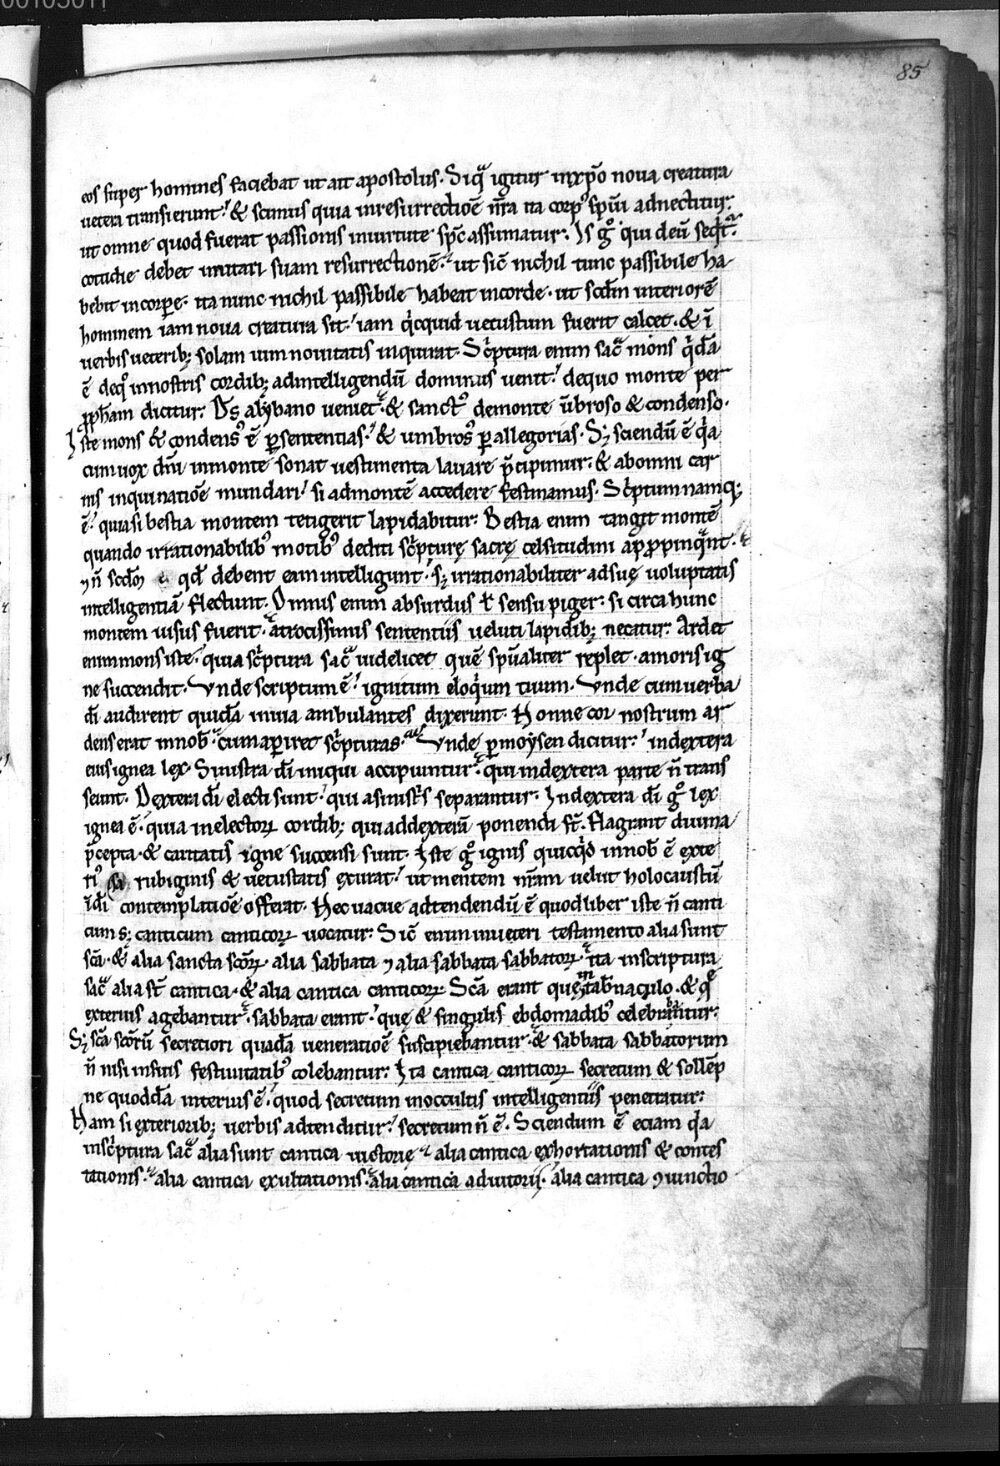 00103011
85
eos super homines faciebat ut ait apostolus. Siqͣ igitur inxp̄o noua creatura
uetera transierunt. & scimus quia inresurrectioē nr̄a ita corpꝰ sp̄ui adnectitur.
ut omne quod fuerat passionis inuirtute sp̄c assumatur. Is gͦ qui deū seqͥtͬ.
cotidie debet imitari suam resurrectionē. ut sic̄ nichil tunc passibile ha
bebit incorꝑe. ita nunc nichil passibile habeat incorde. ut scd̄m interiorē
hominem iam noua creatura sit. iam qͥcquid uetustum fuerit calcet. & ī
uerbis ueterib; solam uim nouitatis inquirat. Scͥptura enim sacͣ mons qͥdā
ē deqͦ innostris cordib; adintelligendū dominus uenit. dequo monte per
ꝓpham dicitur. Ds̄ alybano ueniet. & sanctꝰ demonte ūbroso & condenso.
Iste mons & condensꝰ ē ꝑsententias. & umbrosꝰ ꝑ allegorias. S; sciendū ē qͥa
cumuox dn̄i inmonte sonat uestimenta lauare p̄cipimur. & abomni car
nis inquinatioē mundari. si admontē accedere festinamus. Scͥptum namq;
ē. quasi bestia montem tetigerit lapidabitur. Bestia enim tangit montē
quando irrationabilibꝰ motibꝰ dediti scͥpturę sacrę celsitudini apꝓpinqͣnt. &
ꝯ n̄ scd̄m qd̄ debent eam intelligunt. s; irrationabiliter adsuę uoluptatis
intelligentiā flectunt. Omnis enim absurdus ł sensu piger. si circa hunc
montem uisus fuerit. atrocissimis sententiis ueluti lapidib; necatur. Ardet
enim mons iste. quia scͥptura sacͣ uidelicet quē sp̄ualiter replet. amoris ig
ne succendit. Vnde scriptum ē. ignitum eloqͥum tuum. Vnde cum uerba
dī audirent quidā inuia ambulantes dixerunt. Nonne cor nostrum ar
dens erat innob̄. cum aperiret scͥpturas. Vnde ꝑmoysen dicitur. indextera
eius ignea lex. Sinistra dī iniqui accipiuntur. qui indextera parte n̄ trans
seunt. Dextera dī electi sunt. qui asinistͥs separantur. Indextera dī gͦ lex
ignea ē. quia inelectoꝝ cordib; qui addexterā ponendi st̄. flagrant diuina
p̄cepta. & caritatis igne succensi sunt. Iste gͦ ignis quicqͥd innob̄ ē exte
riꝰ rubiginis & uetustatis exurat. ut mentem nr̄am uelut holocaustū
īdī contemplatioē offerat. Nec uacue adtendendū ē quod liber iste n̄ canti
cum s; canticum canticoꝝ uocatur. Sic̄ enim inueteri testamento alia sunt
scā. & alia sancta scōꝝ. alia sabbata ꝯ alia sabbata sabbatoꝝ. ita inscriptura
sacͣ alia st̄ cantica. & alia cantica canticoꝝ. Scā erant quę in tab̄naculo. & qͤ
exterius agebantur. sabbata erant. quę & singulis ebdomadibꝰ celebrantur.
S; scā scōrū secretiori quadā ueneratioē suscipiebantur. & sabbata sabbatorum
n̄ nisi insuis festiuitatibꝰ colebantur. Ita cantica canticoꝝ secretum & sollēp
ne quoddā interius ē. quod secretum inoccultis intelligentiis penetratur.
Nam si exteriorib; uerbis adtenditur. secretum n̄ ē. Sciendum ē eciam qͥa
inscͥptura sacͣ alia sunt cantica uictorię. alia cantica exhortationis & contes
tationis. alia cantica exultationis. alia cantica adiutorii. alia cantica ꝯiunctio